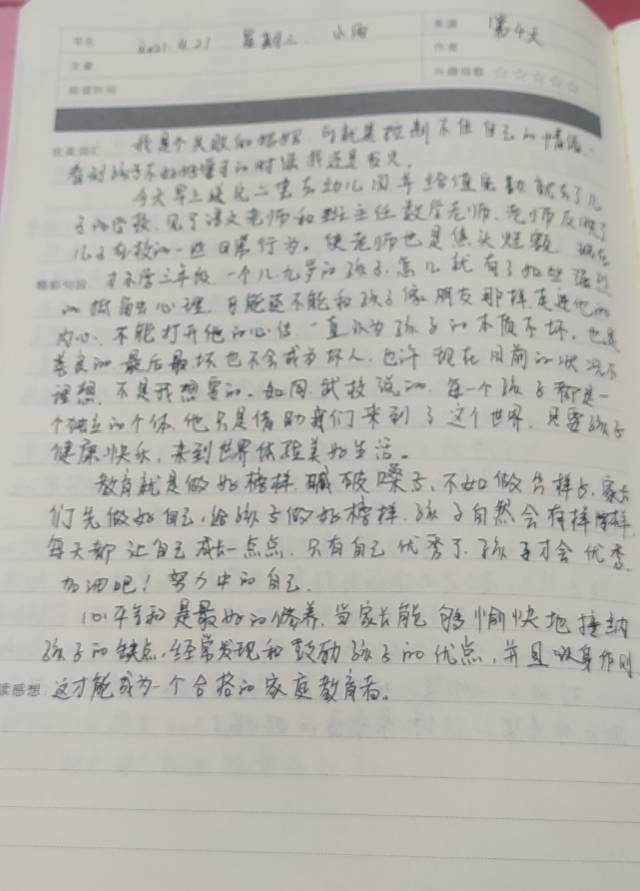 书名 2021.4.21 星期三 小雨 来源 第4天
文章 作者
阅读时间 兴趣指数 ☆☆☆☆☆
优美词汇 我是个失败的妈妈,可就是控制不住自己的情绪,
看到孩子不好好学习的时候我还是发火。
今天早上送完二宝去幼儿园 给值日 就去了儿
子的学校,见了语文老师和班主任数学老师,老师反映了
儿子在校的一些日常行为。使老师也是焦头烂额,现在
精彩句段 才小学三年级,一个八九岁的孩子,怎么就有了如此强烈
的抵触心理,可能还不能和孩子像朋友那样走进他的
内心,不能打开他的心结,一直认为孩子的本质不坏,也是
善良的,最后最坏也不会成为坏人,也许现在目前的状况不
理想,不是我想要的。如同武校说的,每一个孩子都是一
个独立的个体,他只是借助我们来到了这个世界,只要孩子
健康快乐,来到世界体验美好生活。
教育就是做好榜样,喊破嗓子,不如做出样子,家长
们先做好自己,给孩子做好榜样,孩子自然会有样学样,
每天都让自己成长一点点,只有自己优秀了,孩子才会优秀,
加油吧!努力中的自己.
心平气和是最好的修养,当家长能够愉快地接纳
孩子的缺点,经常发现和鼓励孩子的优点,并且以身作则
读感想 这才能成为一个合格的家庭教育者。